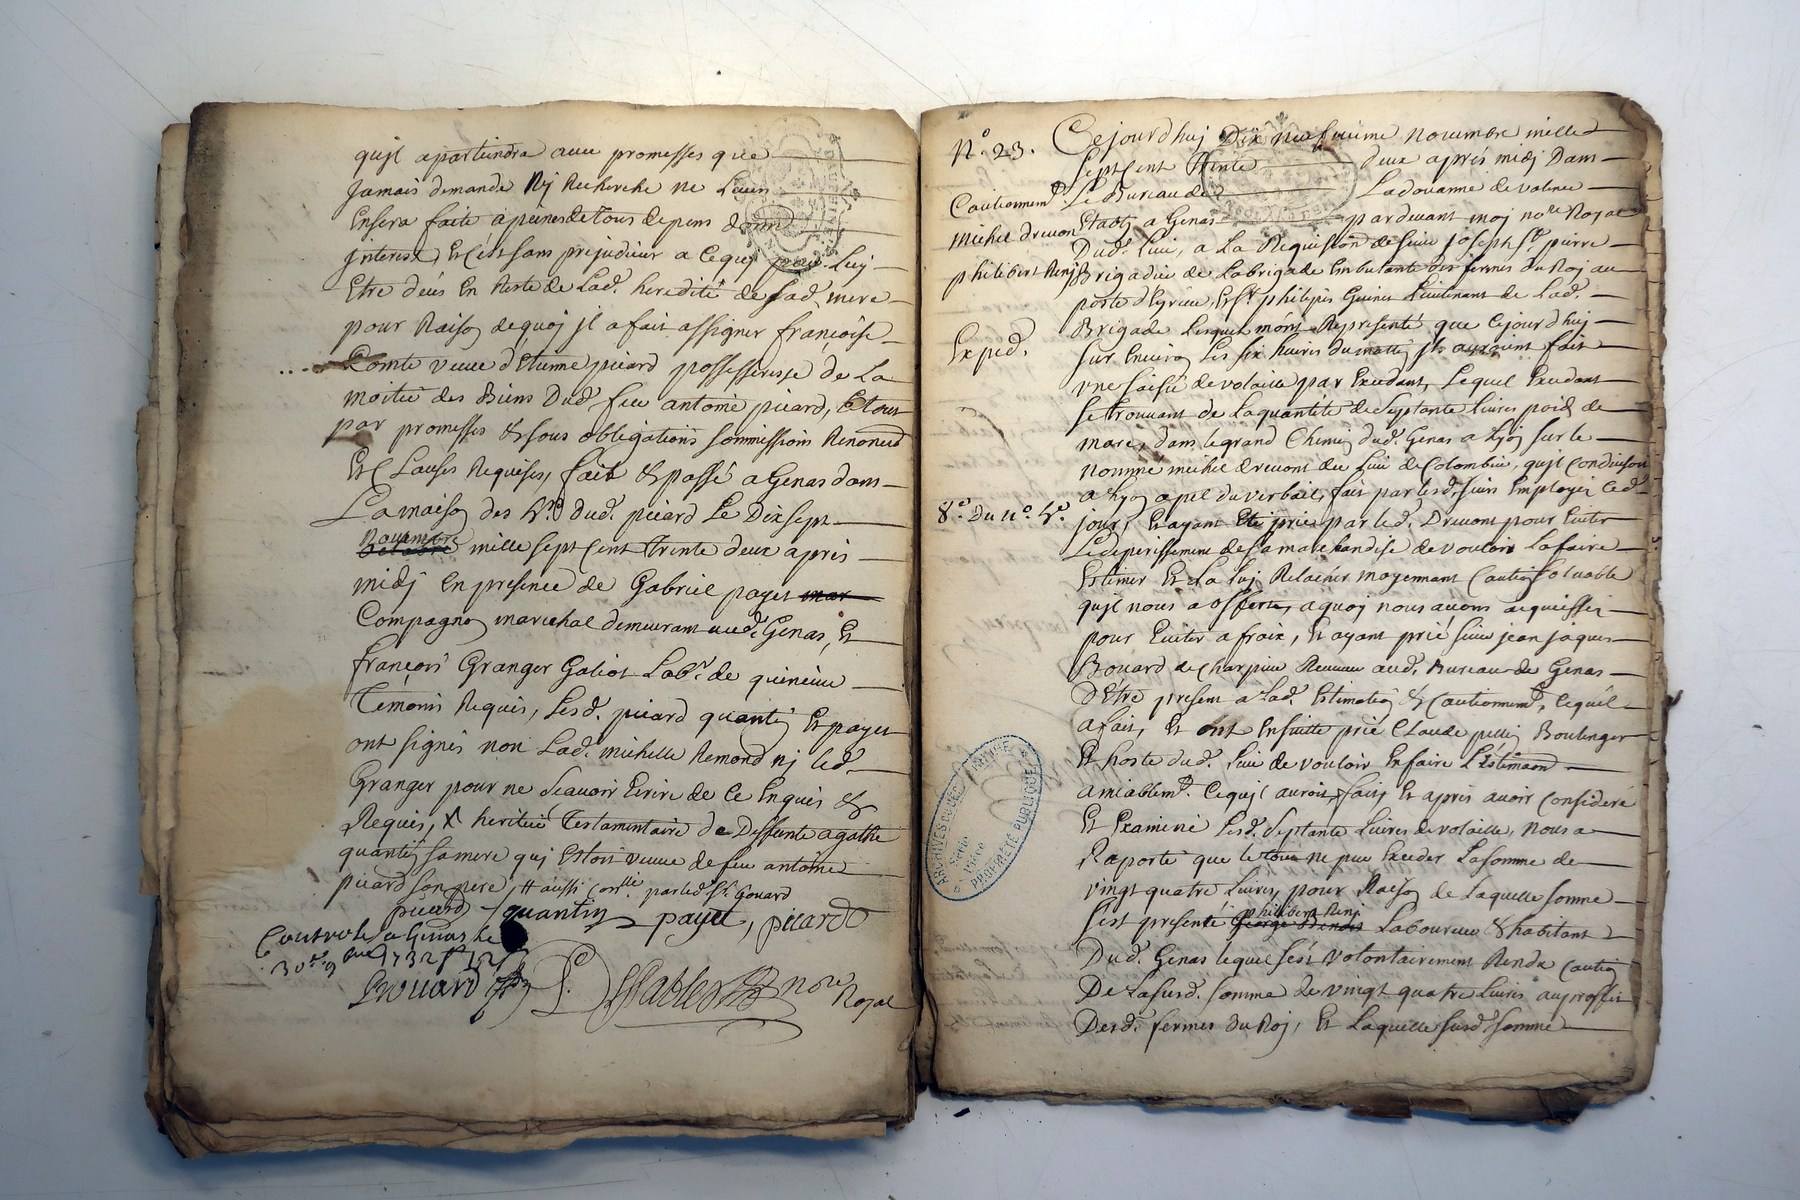 qujl apartiendra avec promesses que
Jamais demande Nj Recherche ne Leur
Ensera faite a peines de tous depens dom
jnterest, Et C'est sans prejudicier a Cequj peut Luj
Etre deüs En Reste de Lad. heredité de sad. mere
pour Raison dequoj jl a fait assigner françoise
Comte veuve d'Etienne picard possesseresse de La
moitié des Biens Dud. feu antoine picard, Et tout
par promesses & sous obligations sommissions Renonce
Et Clauses Requises, fait & passé a Genas dans
La maison des hrs dud. picard Le Dix sept
novembre
octobre mille sept Cent trente deux apres
midj En presence de Gabriel payet mar
Compagnon marechal demeurant aud. Genas, Et
françois Granger Galiot Labr. de
Temoins Requis, Lesd. picard quantin Et payet
ont signés non Lad. michelle Remond nj led.
Granger pour ne Scavoir Ecrire de Ce Enquis &
Requis, X heritier Testamentaire de Deffunte agathe
quantin sa mere quj Estoit veuve de feu antoine
picard son pere, # aussi par led. Sr. Bouard
picard quantin payet, picard
Controlé a Genas le
30e. 9bre 1732
Bouard nore
Royal
N°. 23. Cejourd'huj Dix neufvieme novembre mille
Sept Cent Trente deux aprés midj Dans
Cautionnemt. Le Bureau de La douanne de valence
Michel drevon Etably a Genas pardevant moj nore Royal
Dud. Lieu, a La Requisition de sieur Joseph St. pierre
philibert Renj Brigadier de La brigade Embulante des fermes du Roj au
poste d'Eyrieu, Et Sr. philipes Guinet Lieutenant de Lad.
Brigade Lesquels m'ont Representé que Cejourd'huj
Exped. sur Environ Les six heures du matin jls auroient fait
vne saisie de volaille par Excedant, Lequel Excedant
se trouvant de La quantité de Septante livres poid de
marc, dans le grand Chemin dud. Genas a Lyon sur le
nommé michel drevont du Lieu de Colombier, qujl Conduisoit
a Lyon apel du verbail fait par lesd. sieurs Employés Ced.
8e. Du n°. 4e. jour, Et ayant Eté priés par led. Drevont pour Eviter
Le deperissement de sa marchandise de vouloir La faire
Estimer Et La Luj Relacher moyennant Caution solvable
qujl nous a offerte, a quoj nous avons acquiessé
pour Eviter a fraix, Et ayant prié sieur jean jaques
Bouard de Charpieu Receveur aud. Bureau de Genas
D'Etre present a Lad. Estimation & Cautionnemt. Cequ'il
a fait, Et ont Ensuitte prié Claude Boulenger
Et hoste dud. Lieu de vouloir En faire L'Estimaon
amiablemt. Cequjl auroit fait Et apres avoir Consideré
Et Examiné Lesd. Septante Livres de volaille, nous a
Raporté que le tout ne peu Exceder La somme de
vingt quatre Livres, pour Raison de Laquelle somme
philibert Renj
s'est presenté George Laboureur & habitant
Dud. Genas lequel s'est volontairement Rendu Caution
De La susd. somme de vingt quatre Livres au proffit
Desd. fermes du Roj, Et Laquelle susd. somme
ARCHIVES DU DÉPt.
Série
Pièce
PROPRIÉTÉ PUBLIQUE